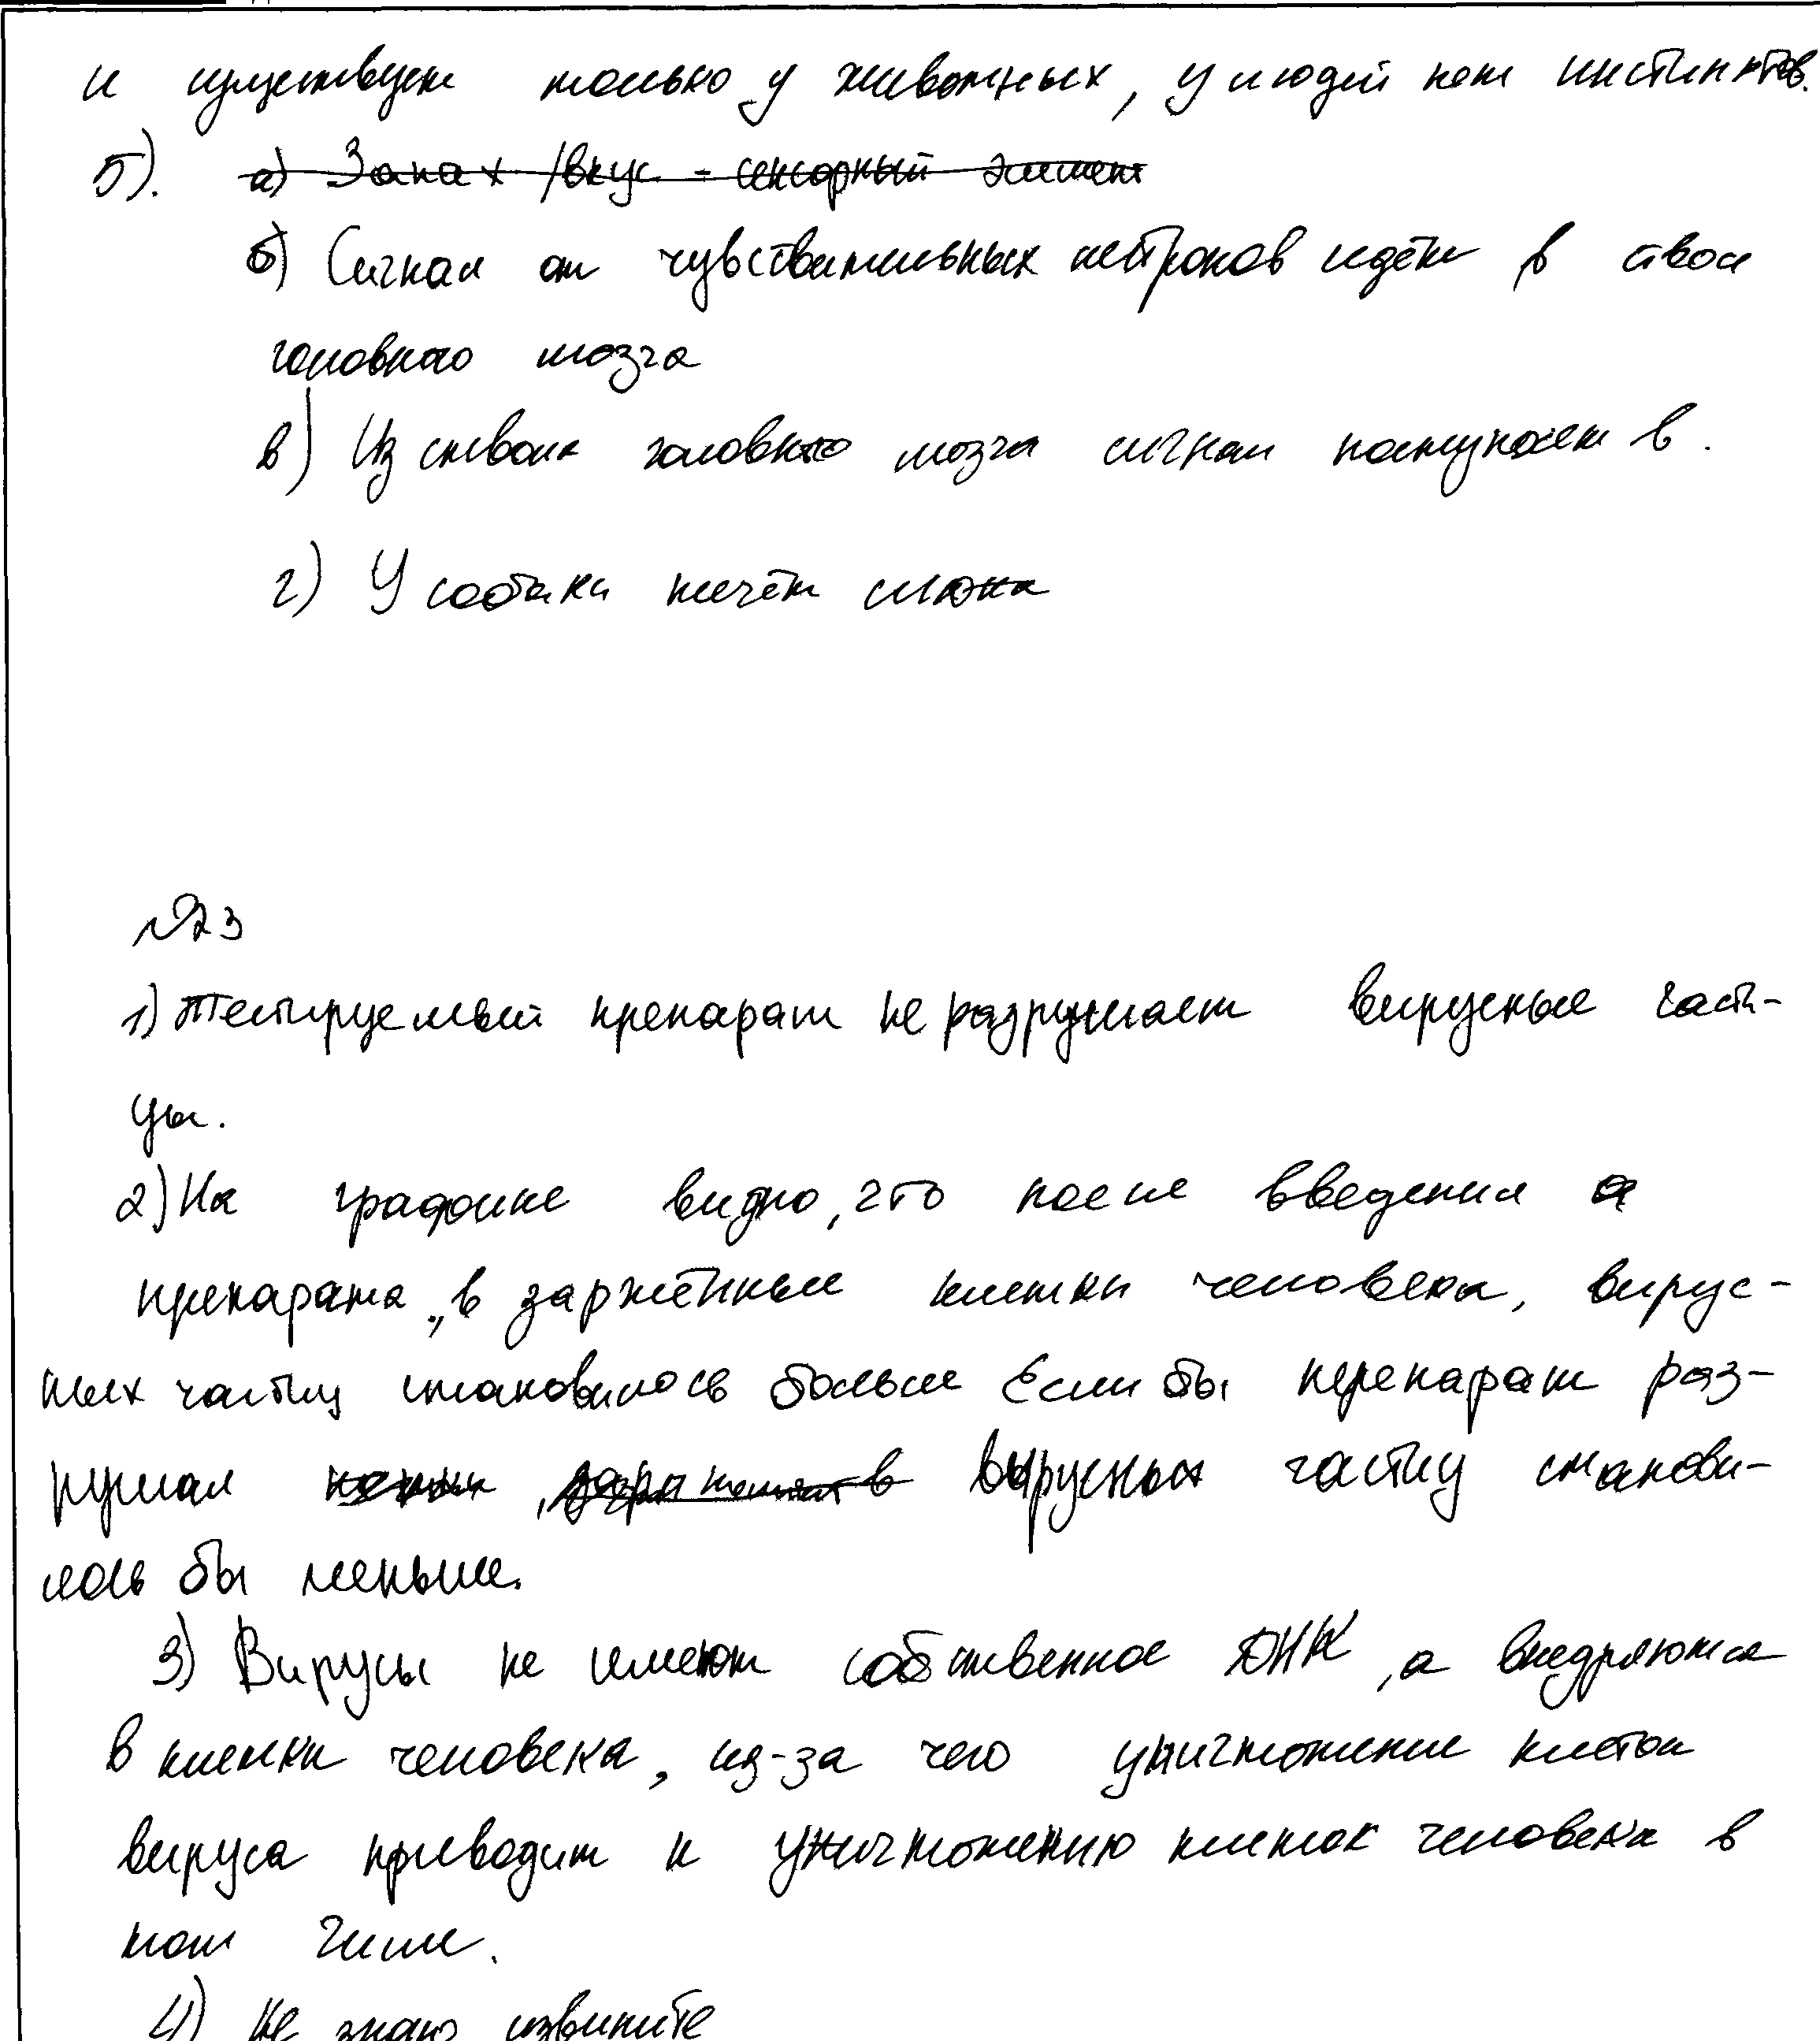 и существует только у животных, у людей нет инстинктов.
5). а) Запах /вкус - сенсорный элемент
б) Сигнал от чувствительных нейронов идёт в ствол
головного мозга
в) Из ствола головного мозга сигнал поступает в .
г) У собаки течёт слюна
№23
1) Тестируемый препарат не разрушает вирусные части-
цы.
2) На графике видно, что после введения
препарата, в заржённые клетки человека, вирус-
ных частиц становилось больше Если бы перепарат раз-
рушал вирусных частиц станови-
лось бы меньше.
3) Вирусы не имеют собственное ДНК, а внедряются
в клетки человека, из-за чего уничтожение клеток
вируса приводит к уничтожению клеток человека в
том числе.
4) Не знаю извините